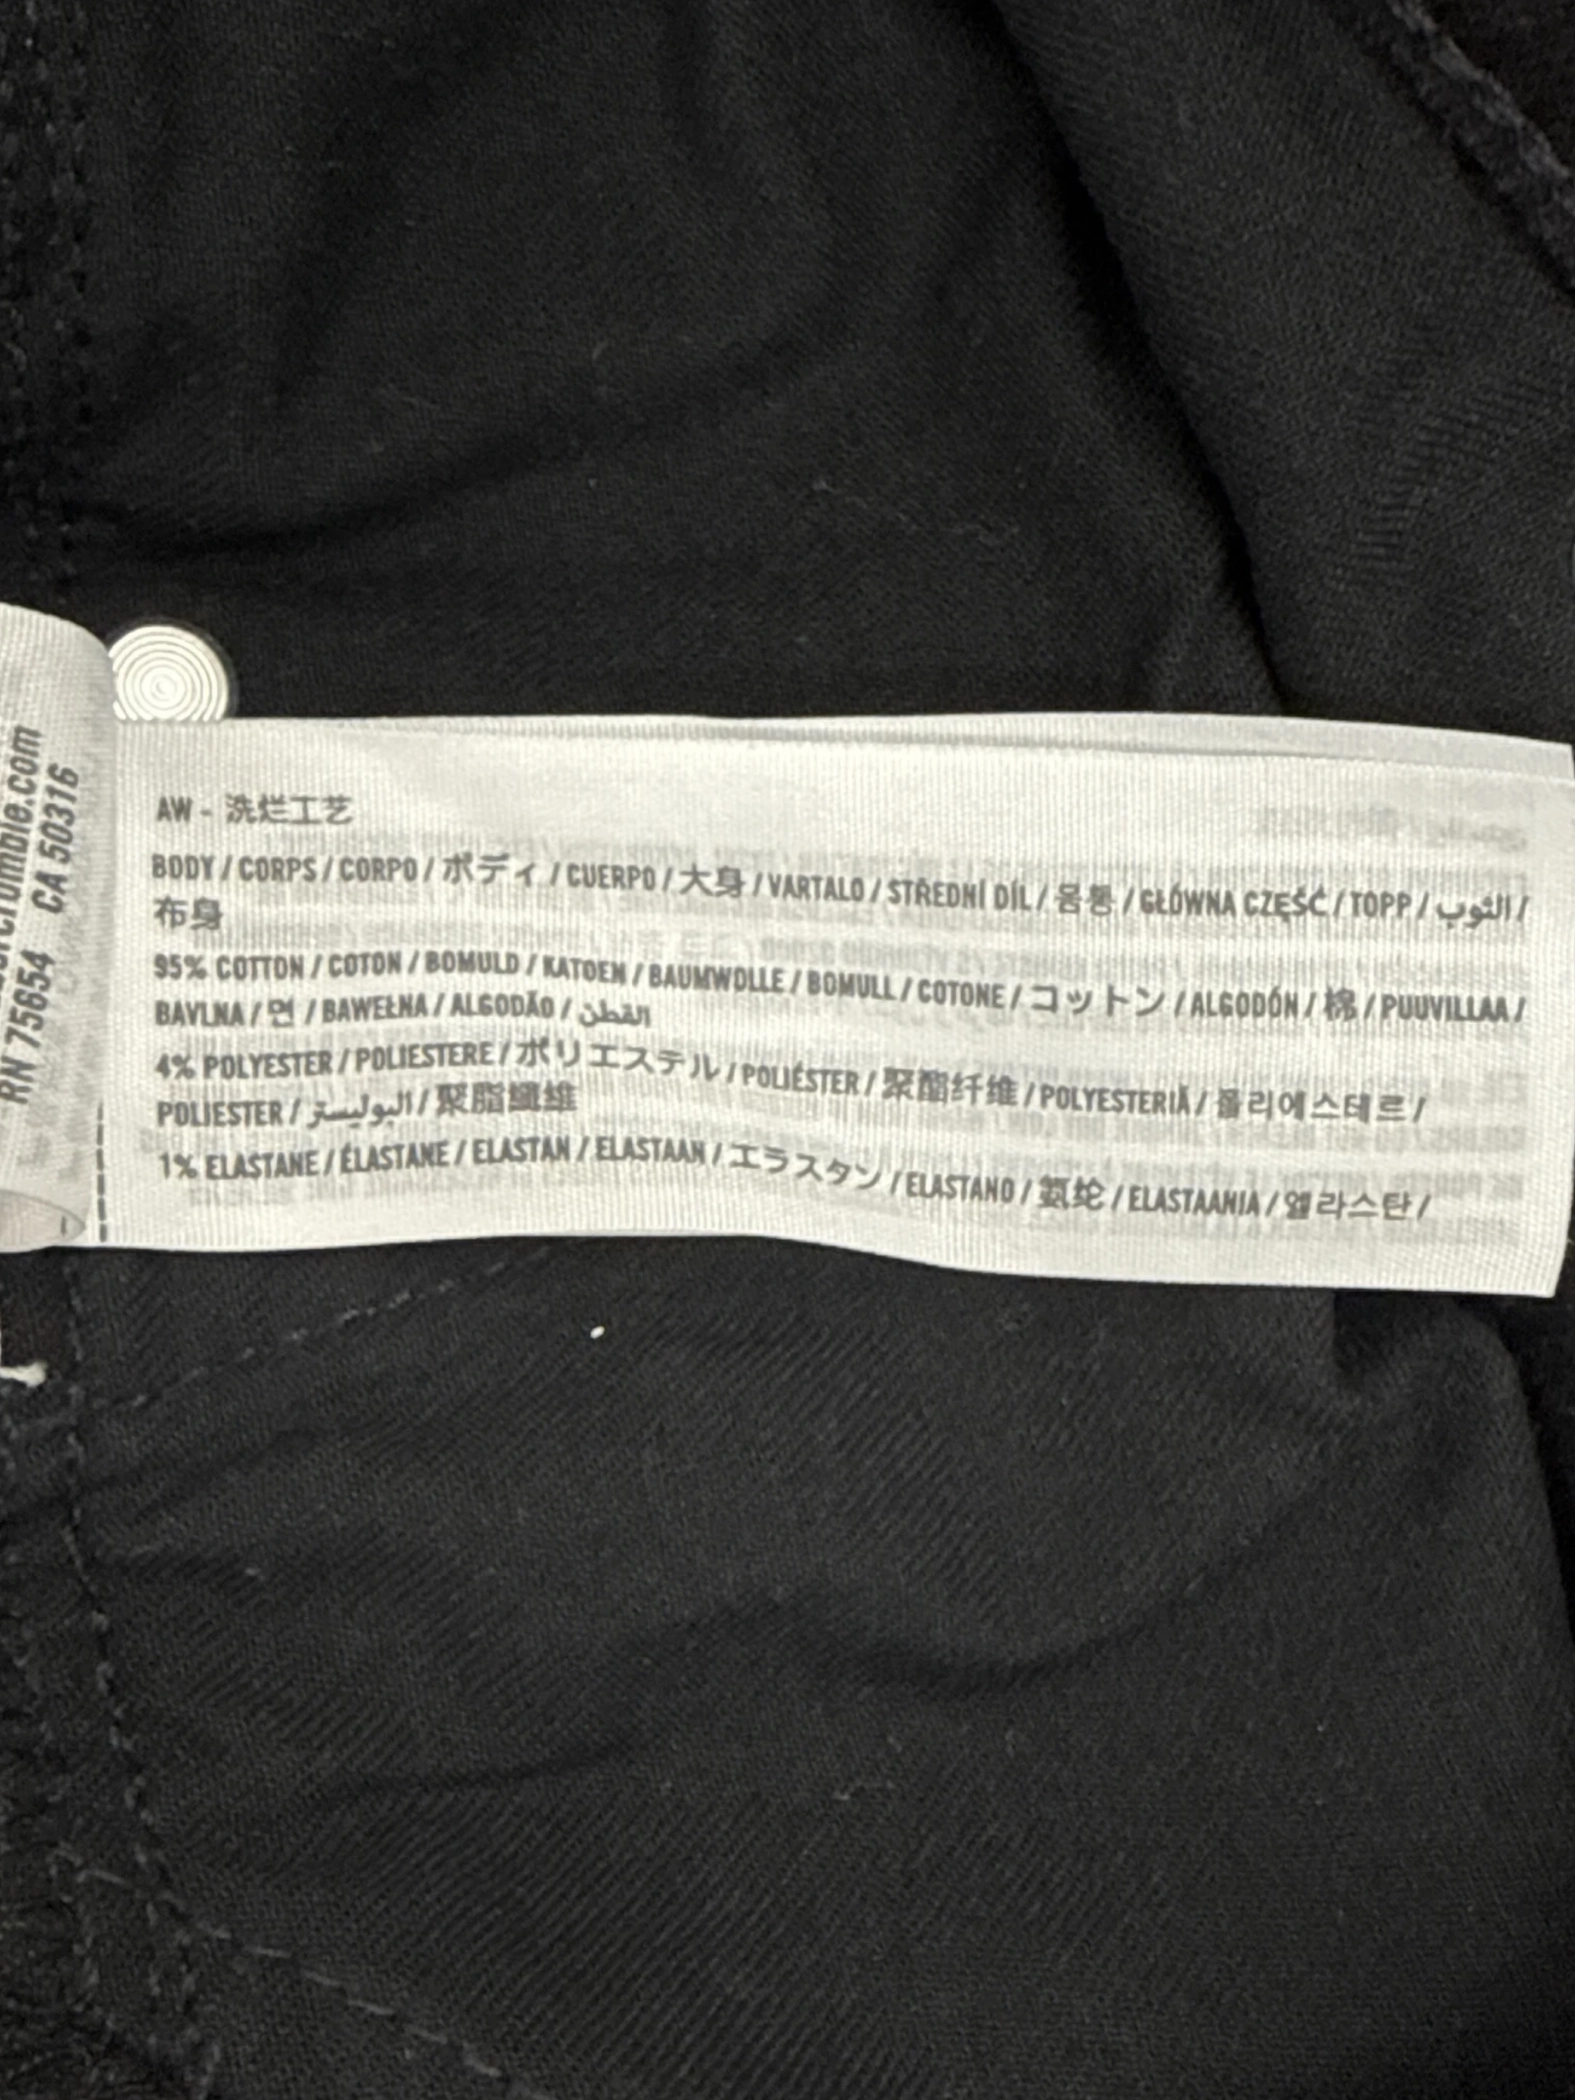 AW - 洗烂工艺
BODY / CORPS / CORPO / ボディ / CUERPO / 大身 / VARTALO / STŘEDNÍ DÍL / 몸통 / GŁÓWNA CZĘŚĆ / TOPP / الثوب /
布身
95% COTTON / COTON / BOMULD / KATOEN / BAUMWOLLE / BOMULL / COTONE / コットン / ALGODÓN / 棉 / PUUVILLAA /
BAVLNA / 면 / BAWEŁNA / ALGODÃO / القطن
4% POLYESTER / POLIESTERE / ポリエステル / POLIÉSTER / 聚酯纤维 / POLYESTERIÄ / 폴리에스테르 /
POLIESTER / البوليستر / 聚脂纖維
1% ELASTANE / ÉLASTANE / ELASTAN / ELASTAAN / エラスタン / ELASTANO / 氨纶 / ELASTAANIA / 엘라스탄 /
RN 75654 CA 50316